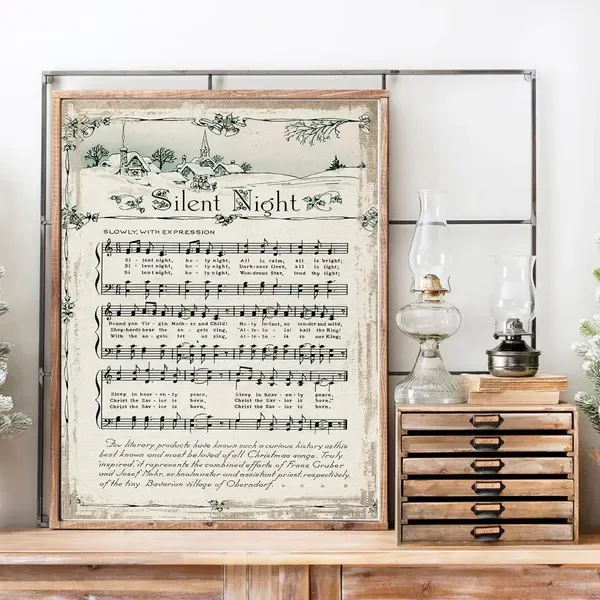 Silent Night
SLOWLY, WITH EXPRESSION
Si - lent night, ho - ly night, All is calm, all is bright;
Si - lent night, ho - ly night, Dark-ness flies, all is light;
Si - lent night, ho - ly night, Won-drous Star, lend thy light;
Round yon Vir - gin Moth - er and Child! Ho - ly Infant, so ten-der and mild,
Shep-herds hear the an - gels sing, "Al - le - lu - ia! hail the King!
With the an - gels let us sing, Al - le - lu - ia to our King;
Sleep in heav - en - ly peace, Sleep in heav - en - ly peace.
Christ the Sav - ior is born, Christ the Sav - ior is born."
Christ the Sav - ior is born, Christ the Sav - ior is born.
Few literary products have known such a curious history as this
best known and most beloved of all Christmas songs. Truly
'inspired', it represents the combined efforts of Franz Gruber
and Josef Mohr, schoolmaster and assistant priest, respectively,
of the tiny Bavarian village of Oberndorf.